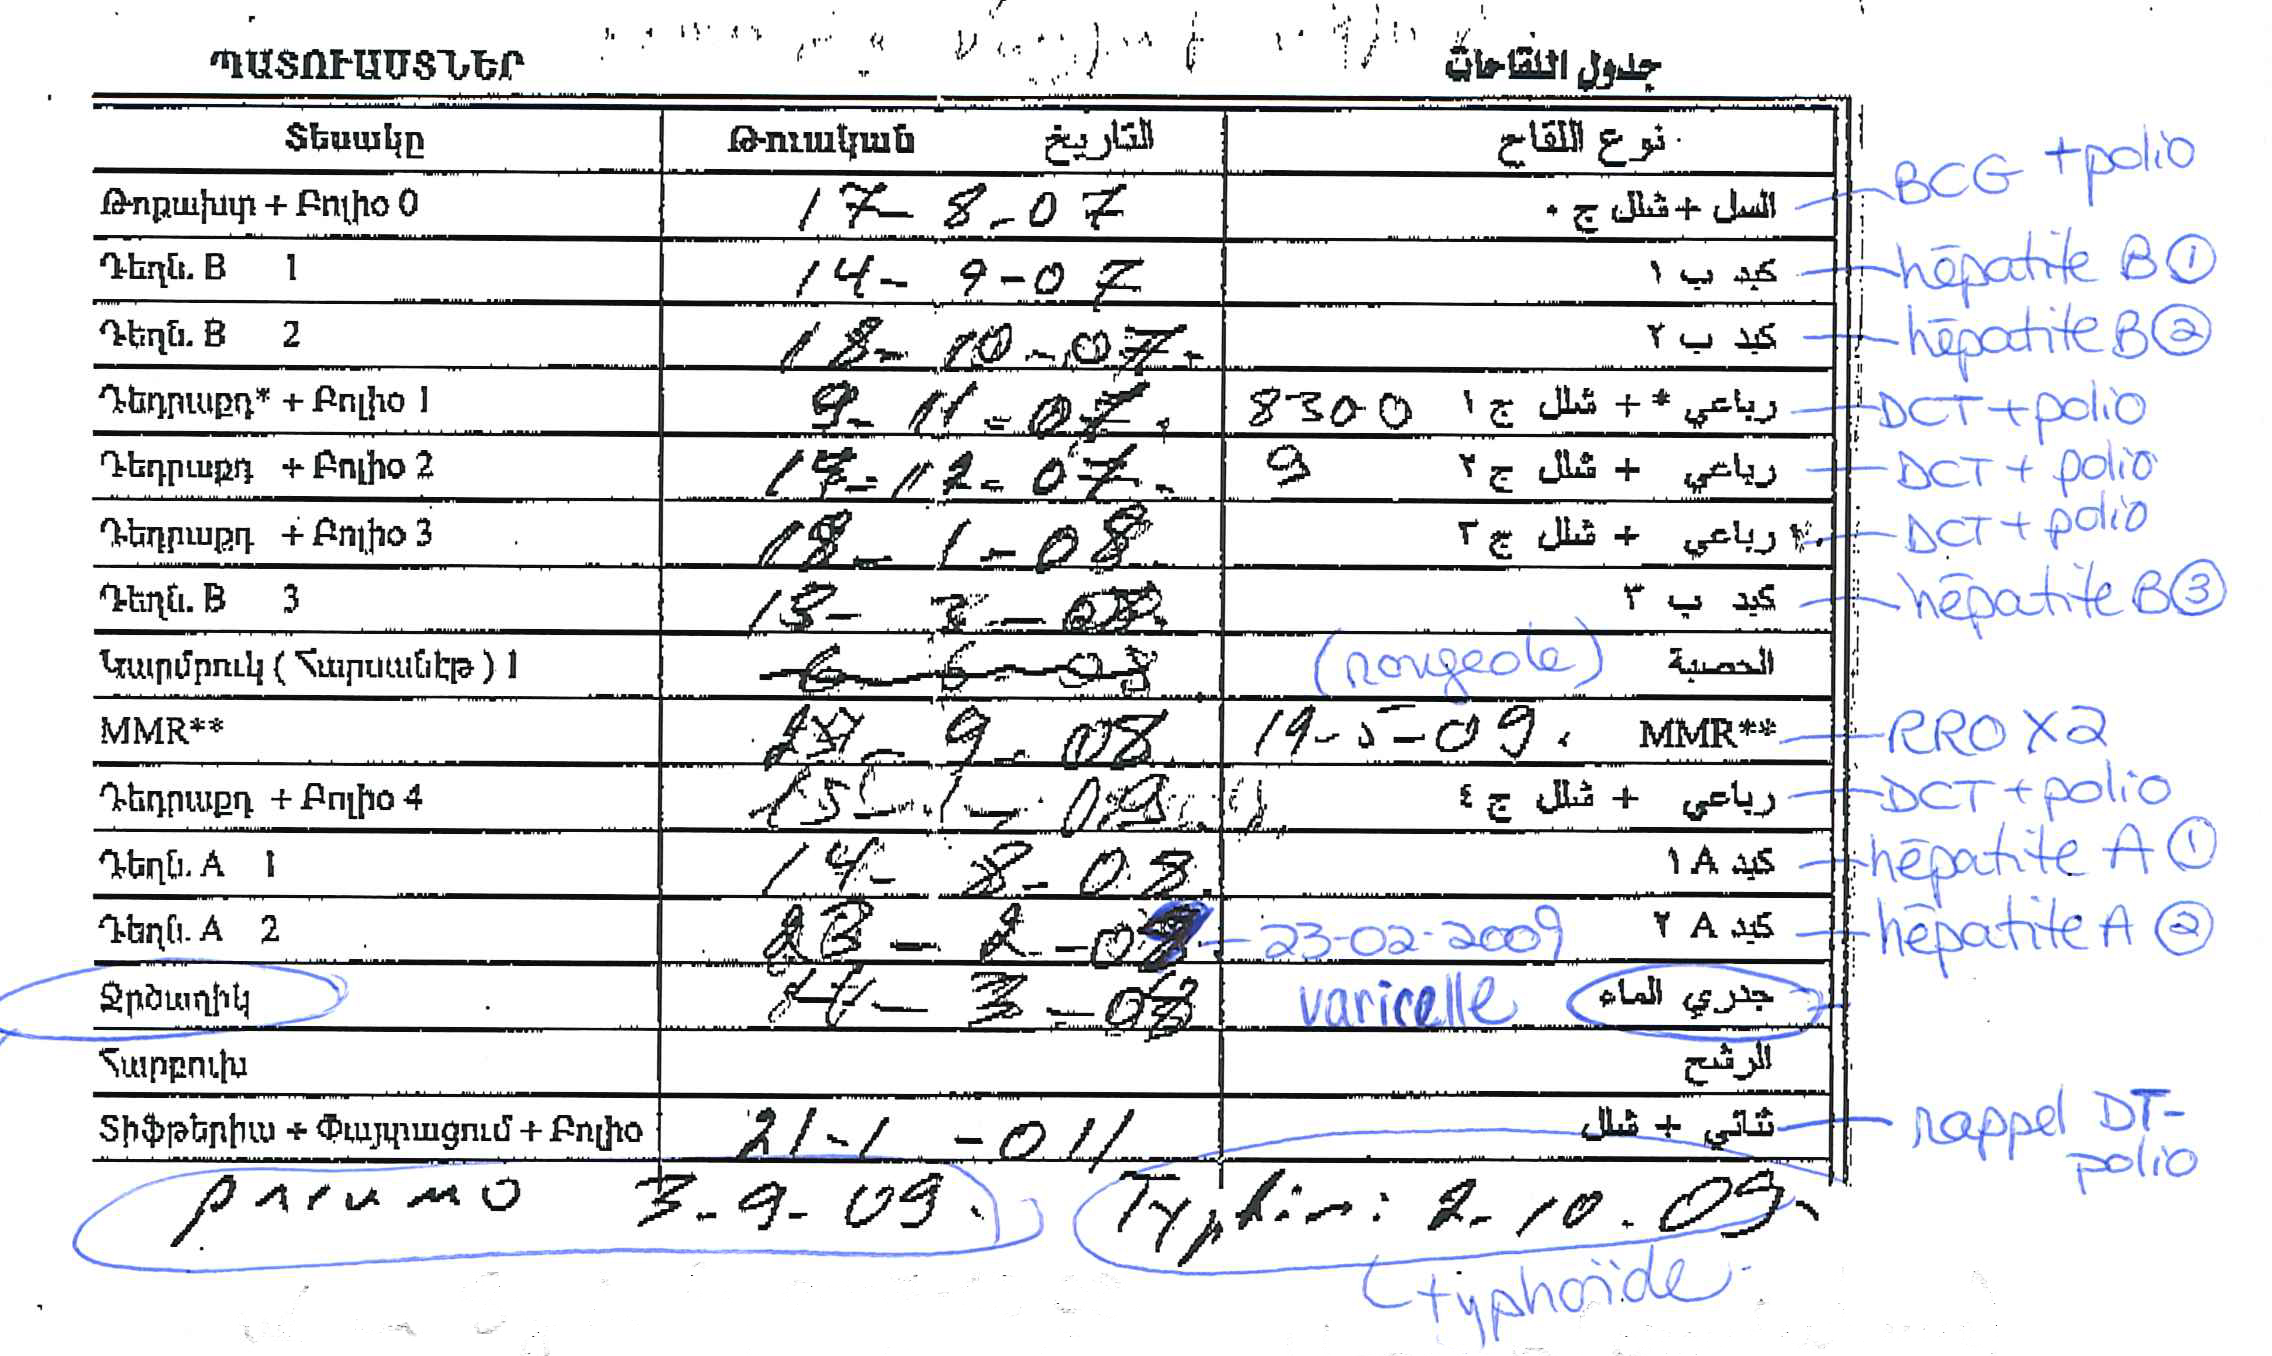 ՊԱՏՈՒԱՍՏՆԵՐ جدول اللقاحات
Տեսակը Թուական التاريخ نوع اللقاح
Թոքախտ + Բոլիօ 0 17-8-07 السل + شلل ج ٠ BCG + polio
Դեղն. B 1 14-9-07 كبد ب ١ hépatite B ①
Դեղն. B 2 18-10-07. كبد ب ٢ hépatite B ②
Դեդրաքդ* + Բոլիօ 1 9-11-07. 8300 رباعي * + شلل ج ١ DCT + polio
Դեդրաքդ + Բոլիօ 2 17-12-07. 9 رباعي + شلل ج ٢ DCT + polio
Դեդրաքդ + Բոլիօ 3 18-1-08. رباعي + شلل ج ٣ DCT + polio
Դեղն. B 3 13-3-08. كبد ب ٣ hépatite B ③
Կարմրուկ ( Հարսանէթ ) 1 6-6-08 (rougeole) الحصبة
MMR** 9-08. 19-5-09. MMR** RRO X2
Դեդրաքդ + Բոլիօ 4 15-1-09 رباعي + شلل ج ٤ DCT + polio
Դեղն. A 1 14-8-08. كبد A ١ hépatite A ①
Դեղն. A 2 23-2-09. 23-02-2009 كبد A ٢ hépatite A ②
Ջրծաղիկ 3-08 varicelle جدري الماء
Հարբուխ الرشح
Տիֆթերիա + Փայտացում + Բոլիօ 21-1-011 ثنائي + شلل rappel DT-
polio
pneumo 3-9-09. Typhim: 2-10-09.
typhoïde